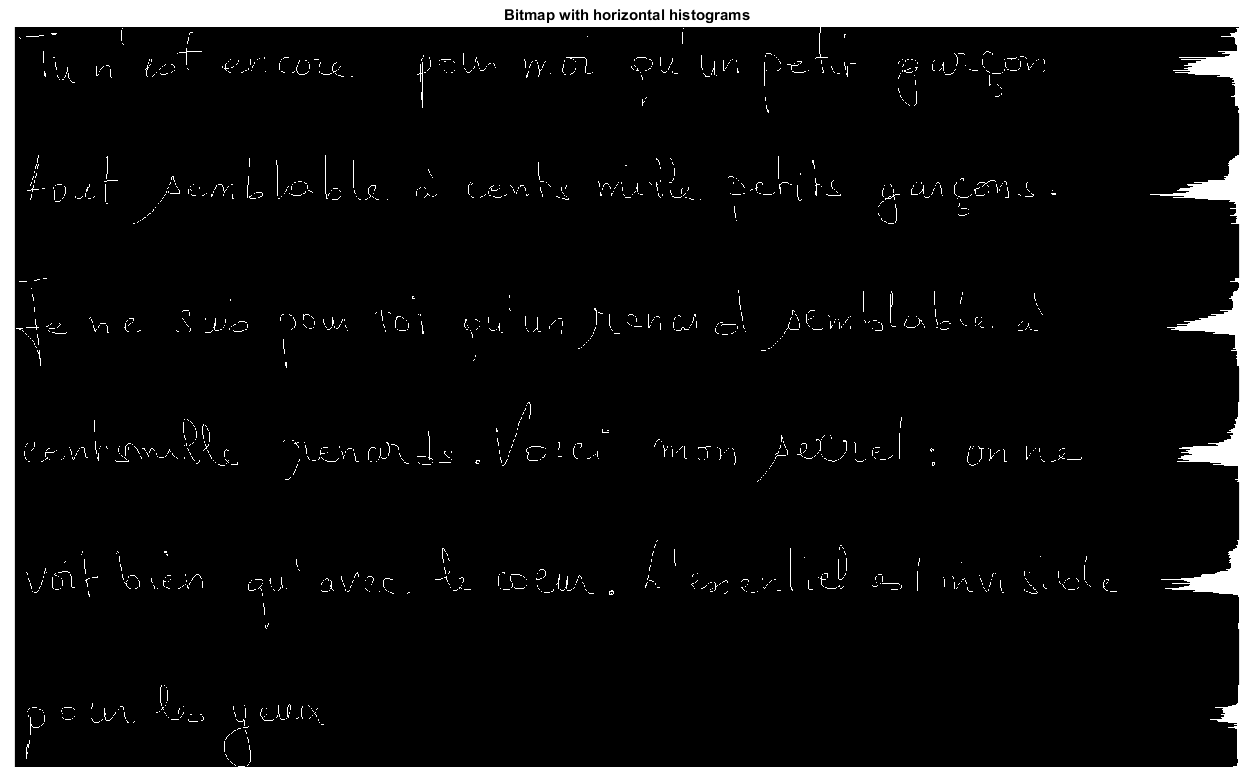 Bitmap with horizontal histograms
Tu n'est encore pour moi qu'un petit garçon
tout semblable à cents mille petits garçons.
Je ne suis pour toi qu'un renard semblable à
centsmille renards. Voici mon secret : on ne
voit bien qu'avec le coeur. L'essentiel est invisible
pour les yeux